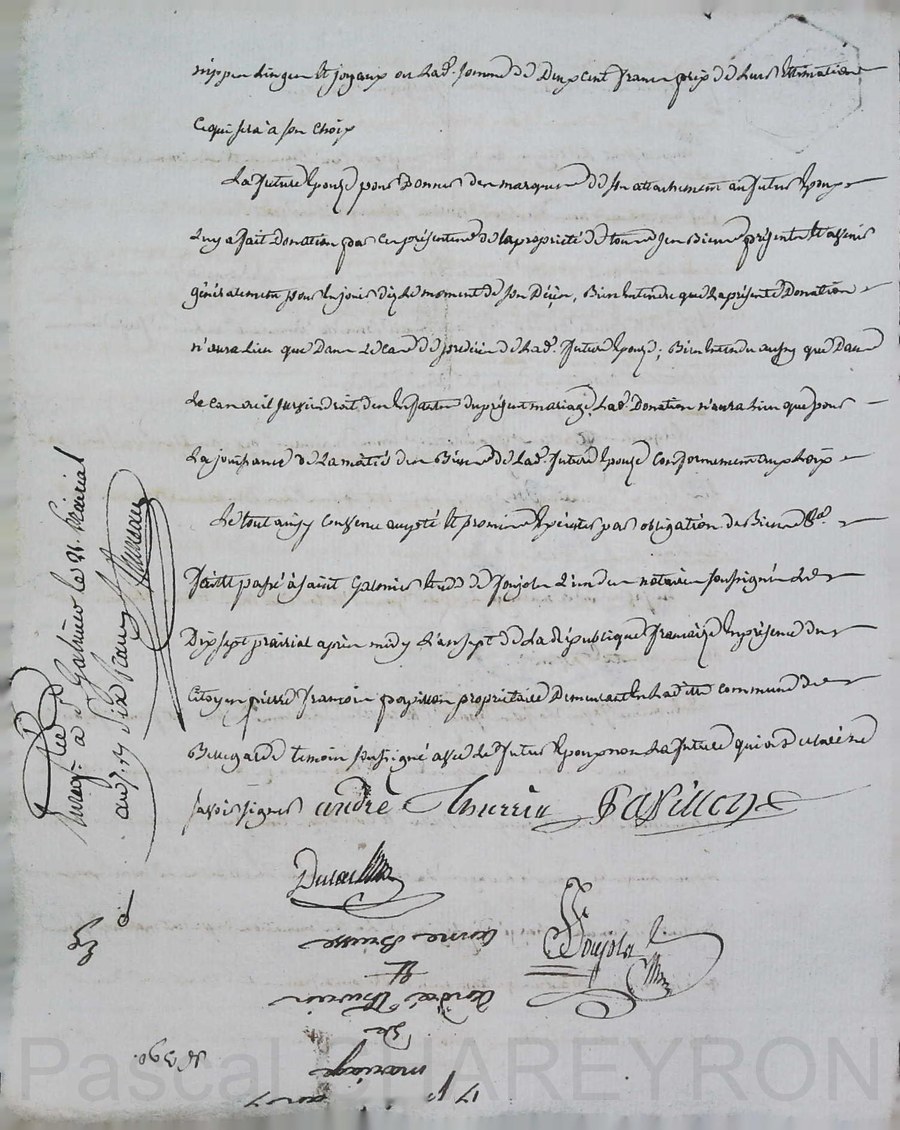 nippes linges et joyaux ou lad. somme de Deux cent francs prix de leur Estimation
ce qui sera à son choix
La future Epouse pour Donner des marques de son attachement au futur Epoux
luy a fait Donation par ces présentes de la propriété de tous ses Biens présents et avenir
généralement pour en jouir dèz le moment de son Décès, Bien Entendu que la présente Donation
n'aura lieu que Dans le cas de prédécès de lad. future Epouse; Bien Entendu aussy que Dans
le cas ou il surviendroit des Enfants du présent mariage, lad. Donation n'aura lieu que pour
La jouissance de La moitié des Biens de lad. future Epouse conformement aux Loix
Le tout ainsy convenu accepté et promis Exécuter par obligation de Biens &a.
fait et passé à saint Galmier Etude de Poujola l'un des notaires soussignés Le
Dix sept prairial après midy L'an sept de La République française En présence du
Citoyen pierre françois payillon propriétaire Demeurant En ladite commune de
Bellegarde temoin soussigné avec le futur Epoux non La future qui a déclaré ne
savoir signer andré thurrin
Poujola
Anne Brisse
Et
André Thurrin
De
mariage
17 pl an 7
N 390
Enreg. à St Galmier le 21 prairial
an 7.